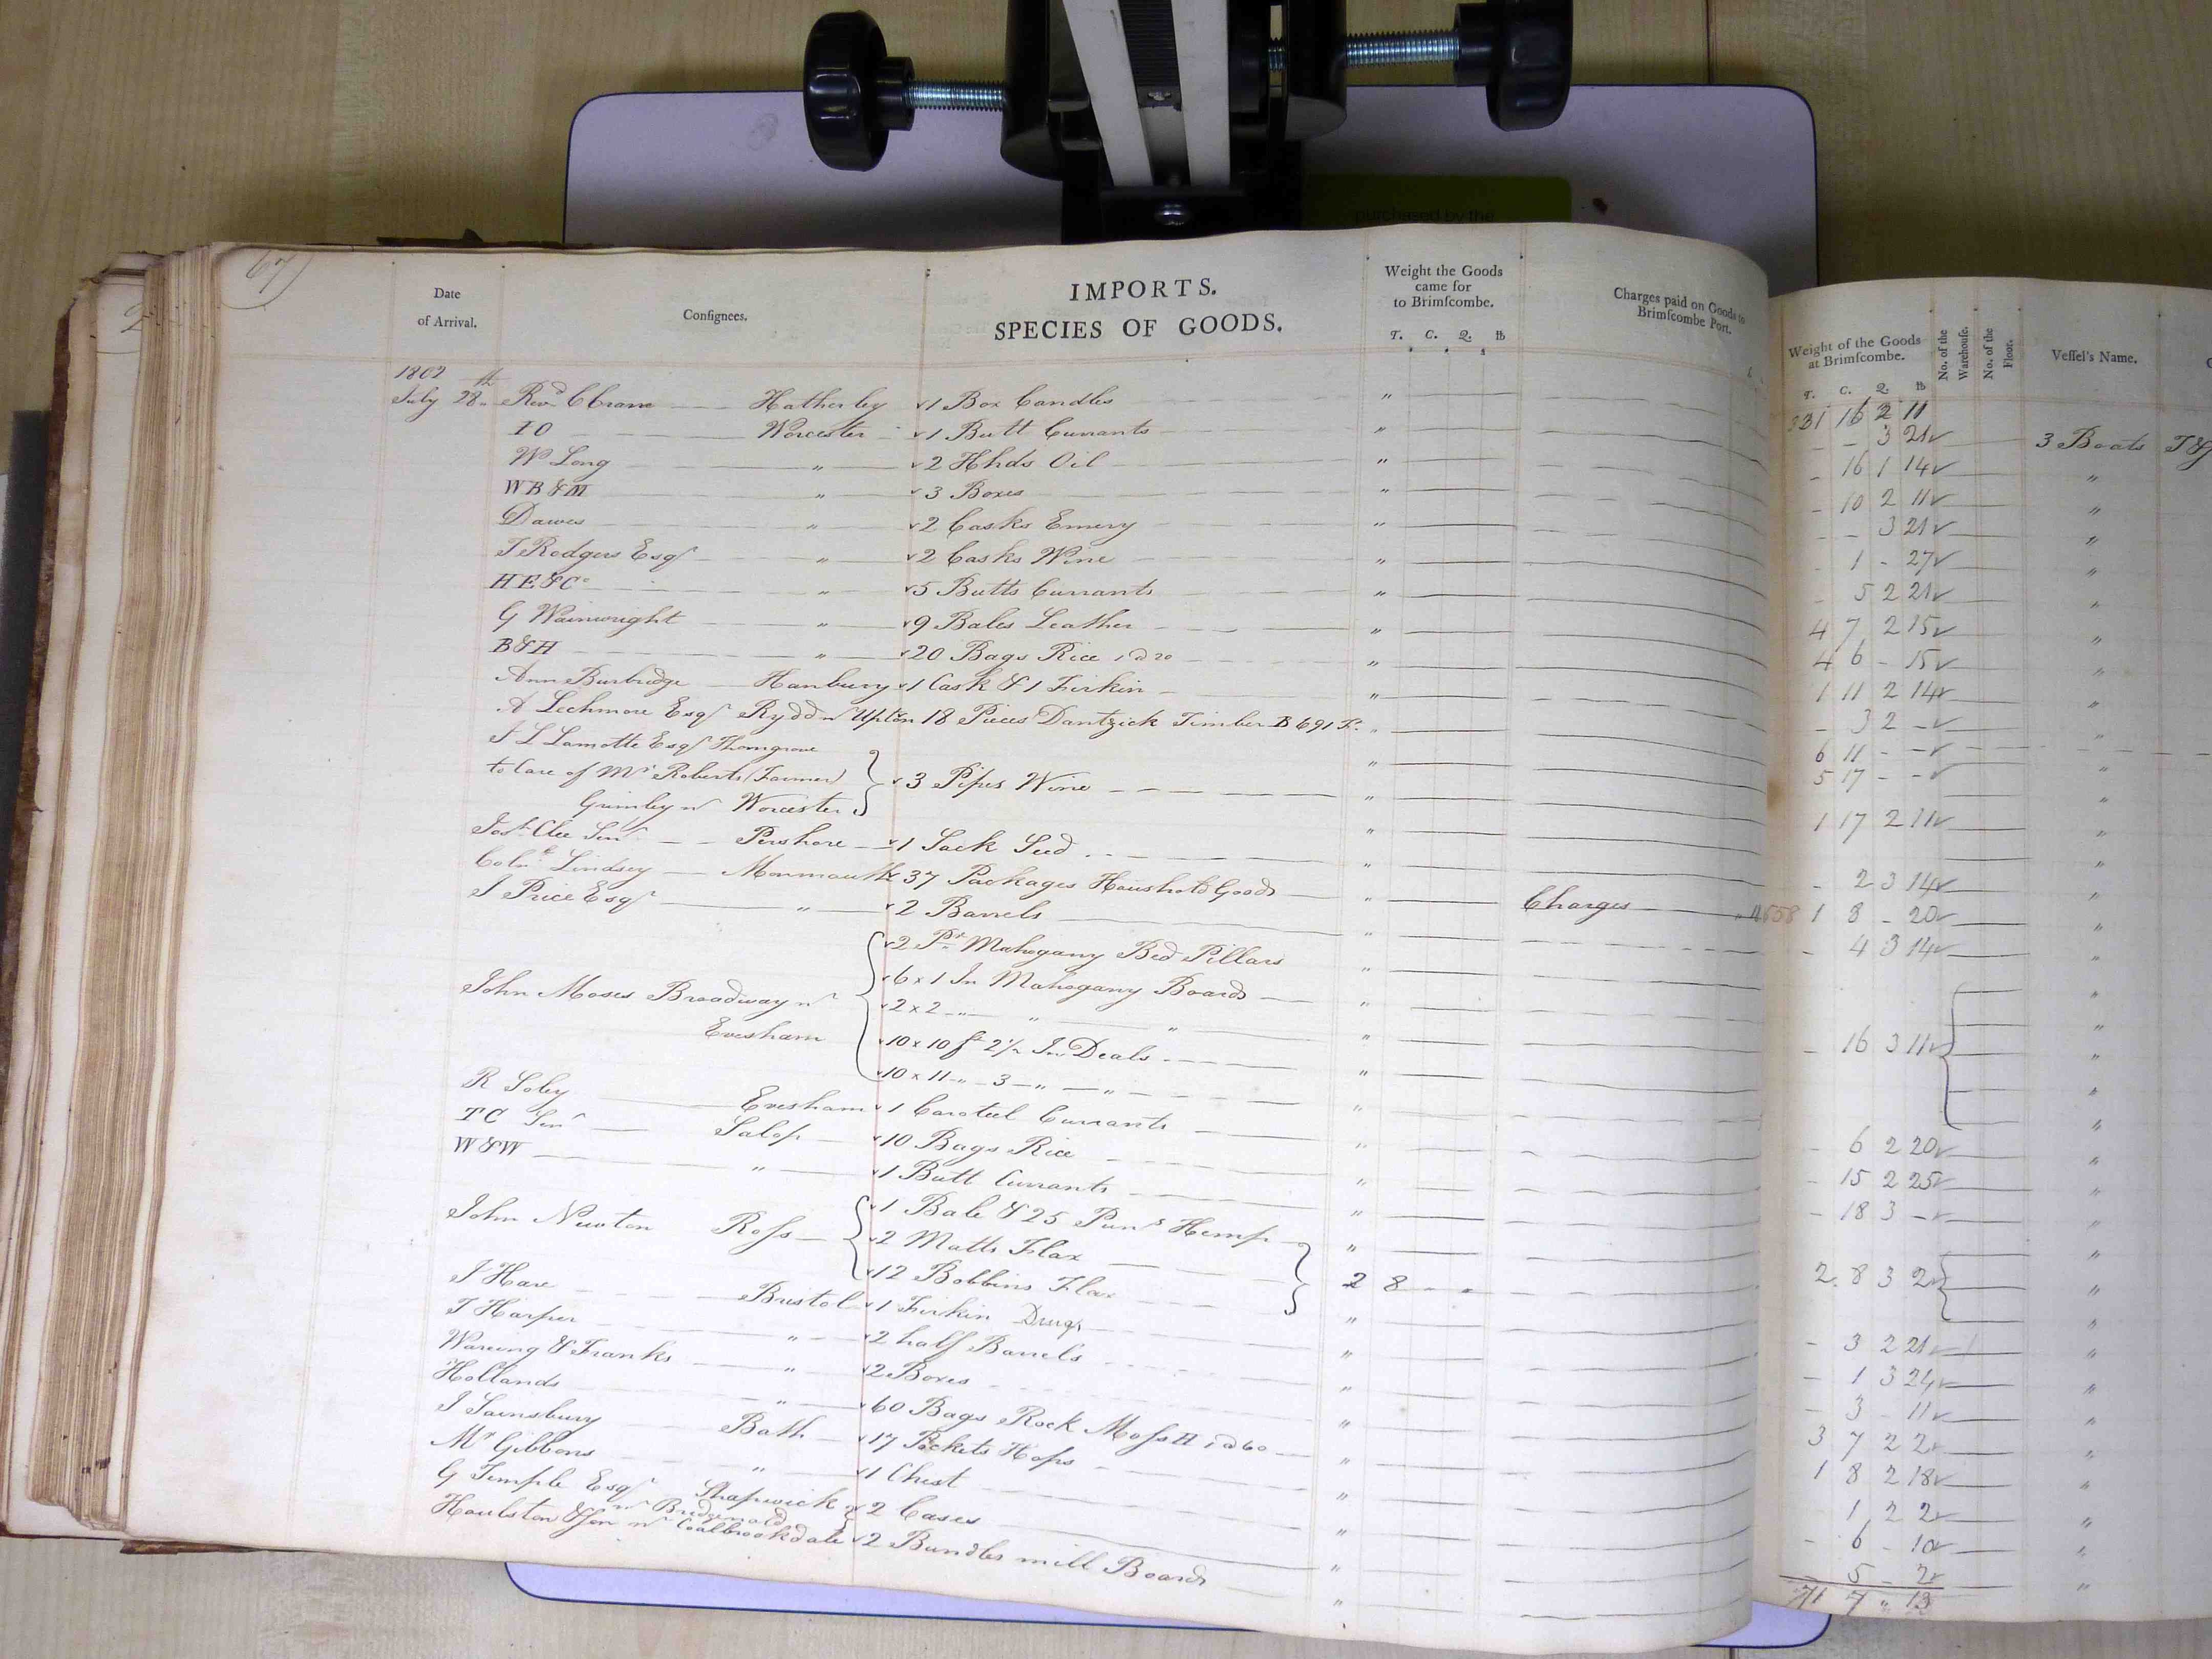 67
2
purchased by the
Date of Arrival.
Consignees.
IMPORTS.
SPECIES OF GOODS.
Weight the Goods came for to Brimſcombe.
T. C. Q. lb
Charges paid on Goods to Brimſcombe Port.
Weight of the Goods at Brimſcombe.
T. C. Q. lb
No. of the Warehouſe.
No. of the Floor.
Veſſel's Name.
331 16 2 11
1802
July 28th Revd C Crane Hatherley 1 Box Candles " - 3 21 3 Boats T&J
IO Worcester 1 Butt Currants " - 16 1 14 "
Wm Long " 2 Hhds Oil " - 10 2 11 "
WB&M " 3 Boxes " - - 3 21 "
Dawes " 2 Casks Emery " - 1 - 27 "
T Rodgers Esqr " 2 Casks Wine " - 5 2 21 "
HE&Co " 5 Butts Currants " 4 7 2 15 "
G Wainwright " 9 Bales Leather " 4 6 - 15 "
B&H " 20 Bags Rice 1 @ 20 " 1 11 2 14 "
Ann Burbidge Hanbury 1 Cask & 1 Firkin " - 3 2 - "
A Lechmore Esqr Rydd nr Upton 18 Pieces Dantzick Timber B 691 Ft. " 6 11 - -
5 17 - - "
J L Lamotte Esqr Thorngrove
to Care of Mr Roberts (Farmer) 3 Pipes Wine " 1 17 2 11 "
Grimley nr Worcester
Josh Clee Senr Pershore 1 Sack Seed " - 2 3 14 "
Colnl Lindsey Monmouth 37 Packages Houshold Goods " Charges 1 8 - 20 "
J Price Esqr " 2 Barrels " - 4 3 14 "
2 Pr Mahogany Bed Pillars "
6 x 1 In Mahogany Boards "
John Moses Broadway nr 2 x 2 " " " - 16 3 11 "
Evesham 10 x 10 ft 2½ In Deals "
10 x 11 " 3 " " "
R Soley Evesham 1 Caroteel Currants " - 6 2 20 "
TC Senr Salop 10 Bags Rice " - 15 2 25 "
W&W " 1 Butt Currants " - 18 3 - "
1 Bale & 25 Puns Hemp "
John Newton Ross 2 Matts Flax 2 8 - - 2 8 3 2 "
12 Bobbins Flax "
J Hare Bristol 1 Firkin Drugs " - 3 2 21 "
T Harper " 2 half Barrels " - 1 3 24 "
Wareing & Franks " 2 Boxes " - 3 - 11 "
Hollands " 60 Bags Rock Moss H 1 @ 60 " 3 7 2 2 "
J Sainsbury Bath 17 Pockets Hops " 1 8 2 18 "
Mr Gibbons " 1 Chest " 1 2 2 "
G Temple Esqr Shapwick nr Bridgewater 2 Cases " - 6 - 10 "
Houlston & Son nr Coalbrookdale 2 Bundles mill Boards " - 5 - 2 "
7 " 13